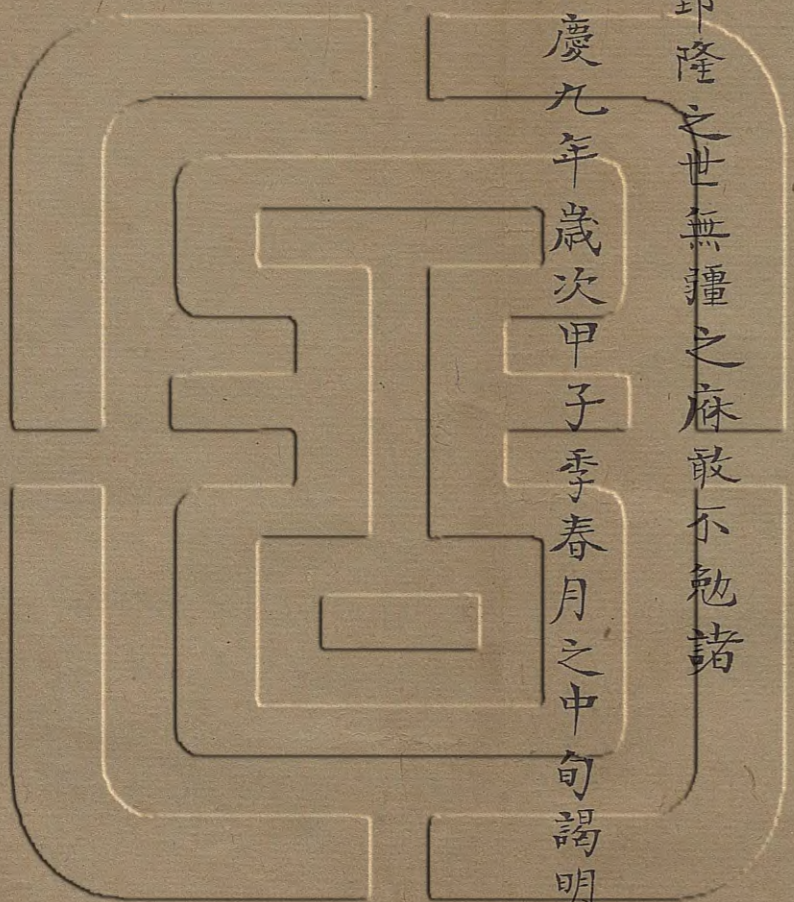 郅隆之世無疆之庥敢不勉諸
慶九年歲次甲子季春月之中旬謁明